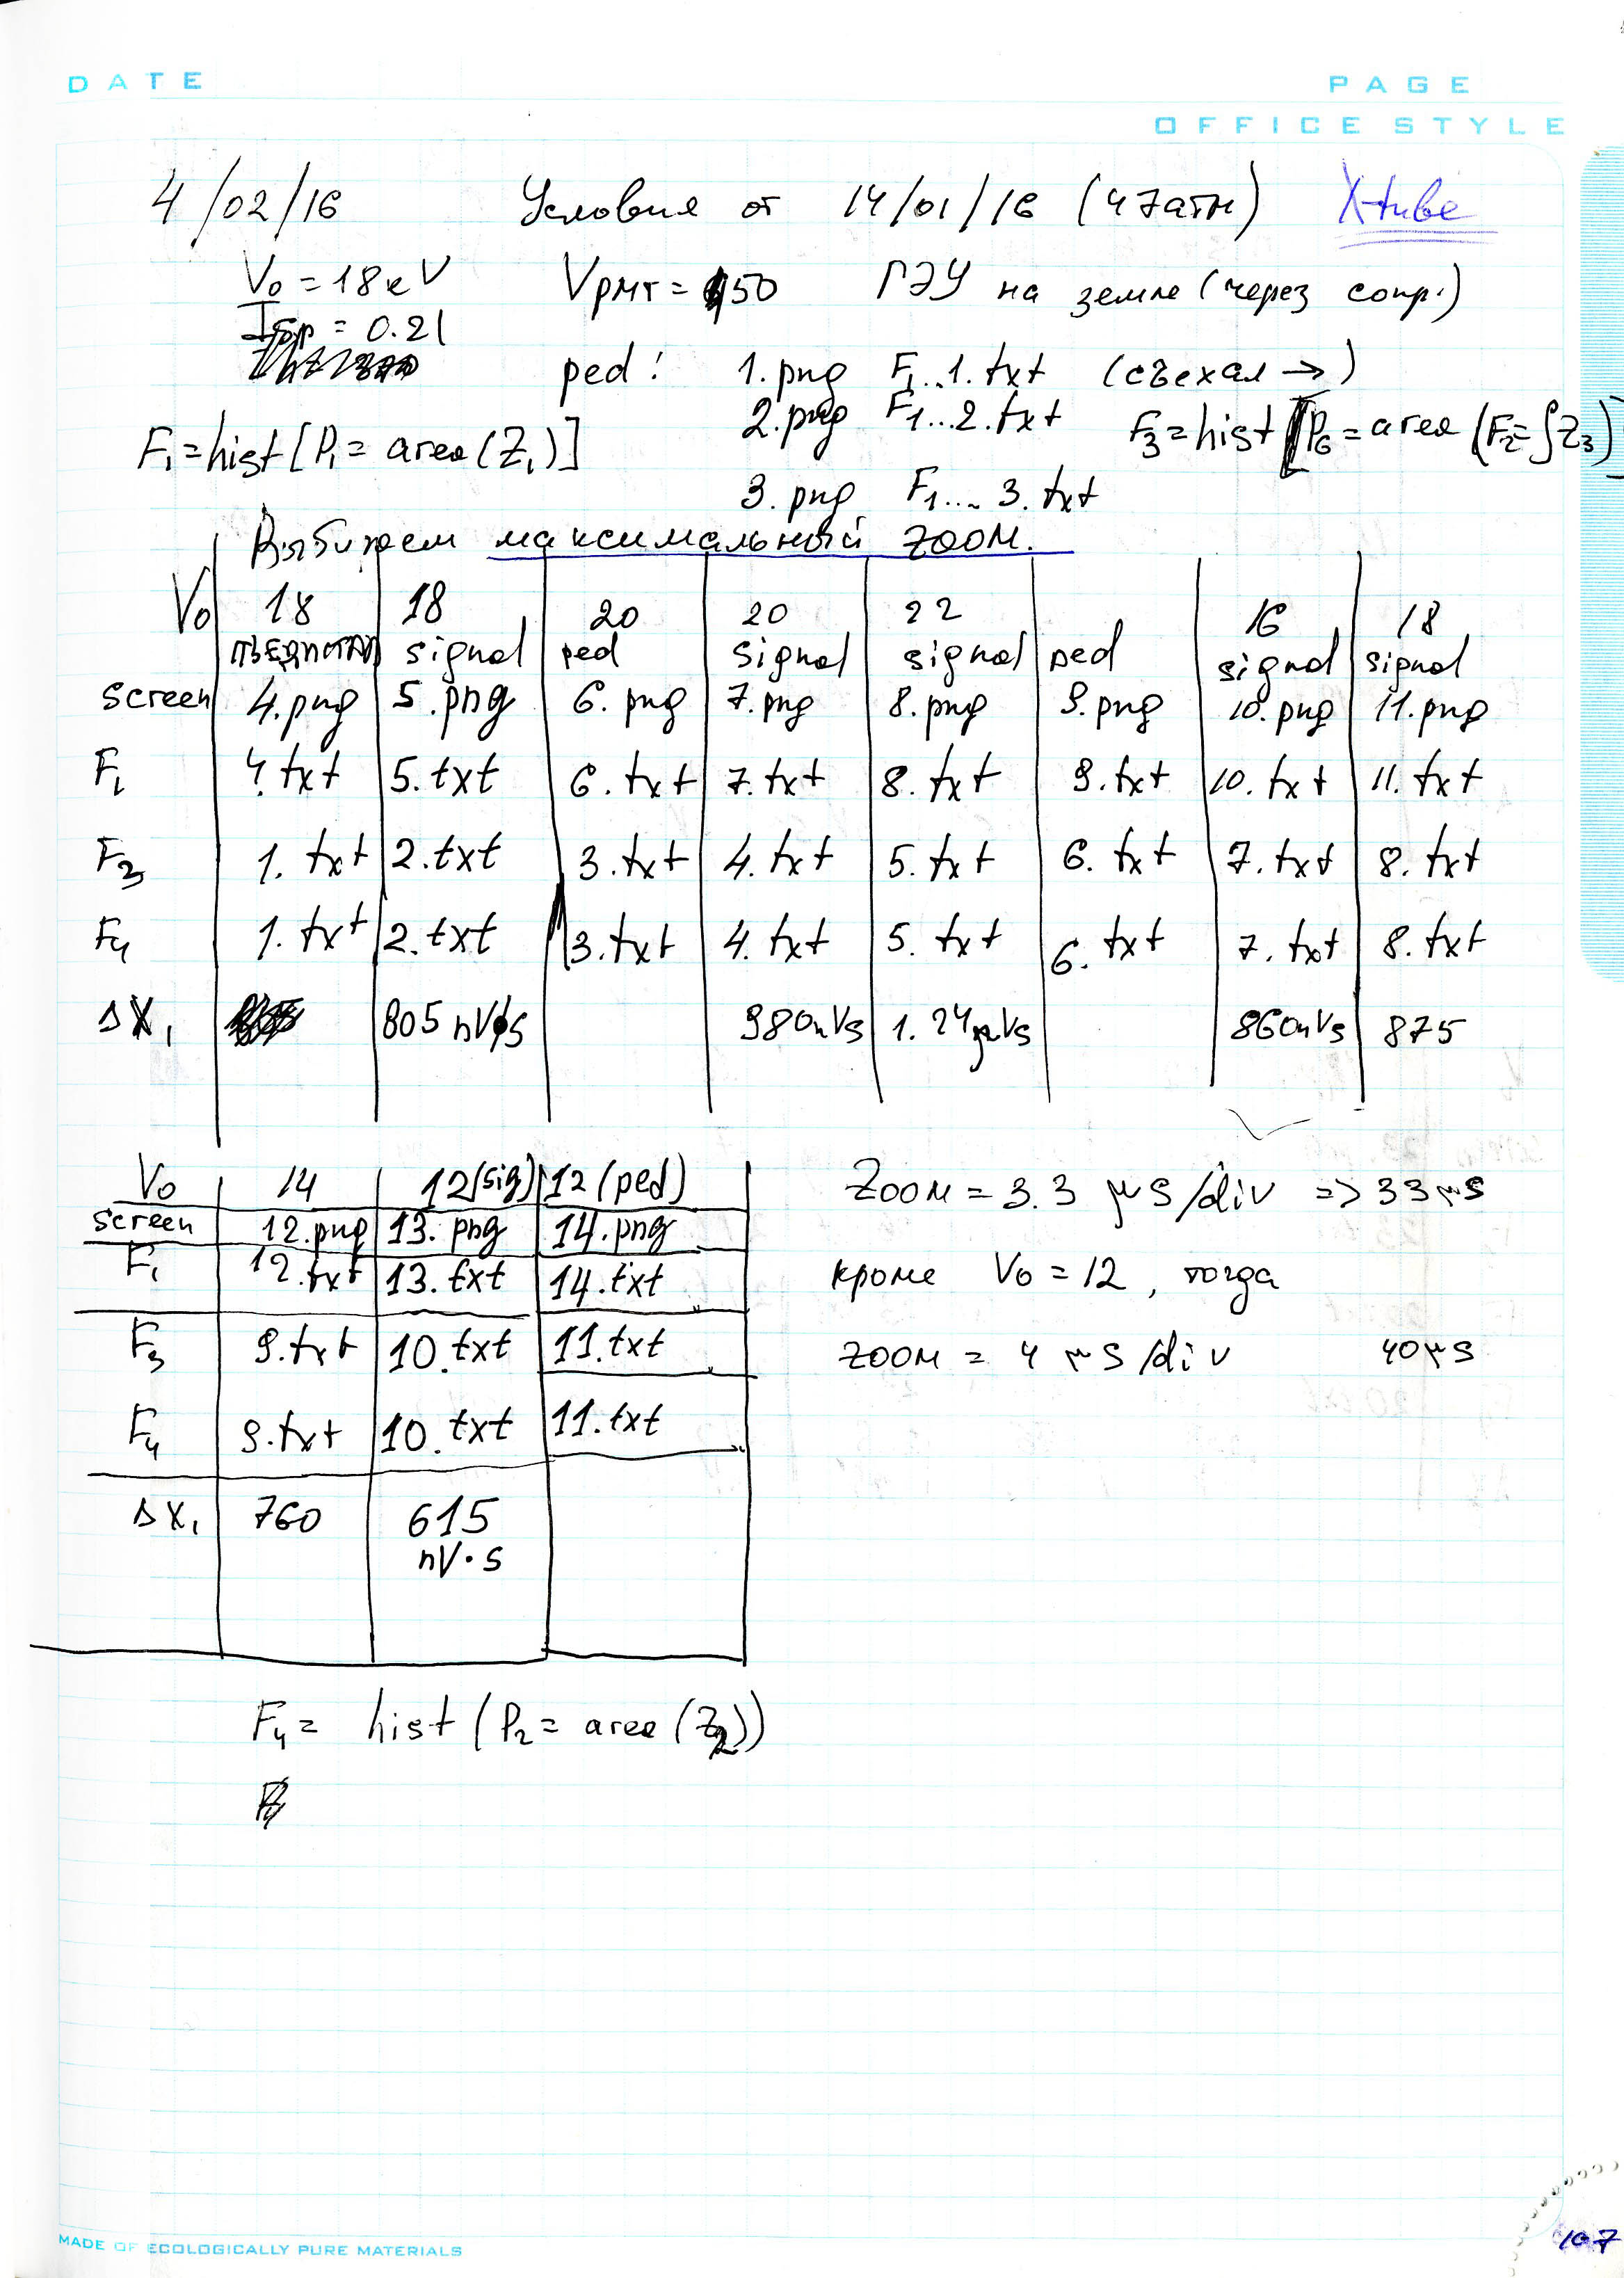 DATE
PAGE
OFFICE STYLE
4/02/16 Условия от 14/01/16 (47атм) X-tube
V0 = 18 кV VРМТ = 50 ГЭУ на земле (через сопр.)
Iбр = 0.21
ped: 1.png F1...1.txt (съехал →)
2.png F1...2.txt
F1 = hist [P1 = area (Z1)] F3 = hist [P6 = area (F2 = ∫Z3)]
3.png F1... 3.txt
Выбираем максимальный ZOOM.
V0 18 18 20 20 22 16 18
пьедпотал signal ped signal signal ped signal signal
screen 4.png 5.png 6.png 7.png 8.png 9.png 10.png 11.png
F1 4.txt 5.txt 6.txt 7.txt 8.txt 9.txt 10.txt 11.txt
F3 1.txt 2.txt 3.txt 4.txt 5.txt 6.txt 7.txt 8.txt
F4 1.txt 2.txt 3.txt 4.txt 5.txt 6.txt 7.txt 8.txt
ΔX1 805 nVs 980nVs 1.24μVs 860nVs 875
V0 14 12(sig) 12(ped)
screen 12.png 13.png 14.png
F1 12.txt 13.txt 14.txt
F3 9.txt 10.txt 11.txt
F4 9.txt 10.txt 11.txt
ΔX1 760 615
nV·s
Zoom = 3.3 μs/div => 33μs
кроме V0 = 12, тогда
zoom = 4 μs/div 40μs
F4 = hist (P2 = area (Z2))
MADE OF ECOLOGICALLY PURE MATERIALS
107